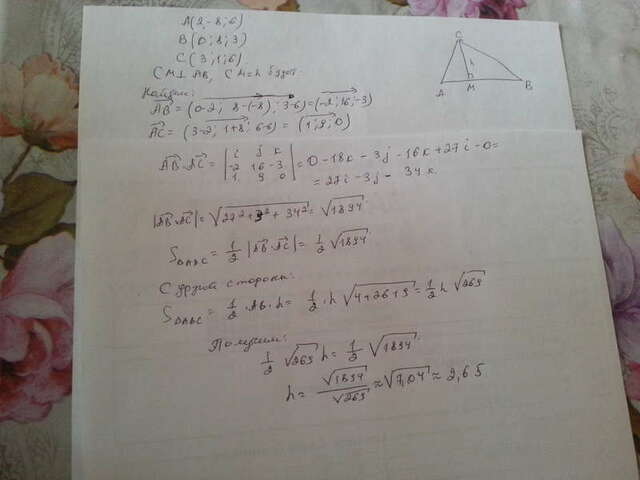 A(2-8;6)
B(0;8;3)
C(3;1;6)
CM⊥AB, CM=h будет
Найдем:
AB = (0-2; 8-(-8); 3-6)=(-2;16;-3)
AC = (3-2; 1+8; 6-6) = (1;9;0)
AB·AC = | i j k | = 0 - 18k - 3j - 16k + 27i - 0 =
| -2 16 -3 |
| 1 9 0 |
= 27i - 3j - 34k.
|AB·AC| = √27²+3²+34² = √1894
S△ABC = 1/2 |AB·AC| = 1/2 √1894
С другой стороны:
S△ABC = 1/2 · AB · h = 1/2 · h √4+26+9 = 1/2 h √269
Получим:
1/2 √269 h = 1/2 √1894
h = √1894/√269 ≈ √7,04 ≈ 2,65
C
h
A M B